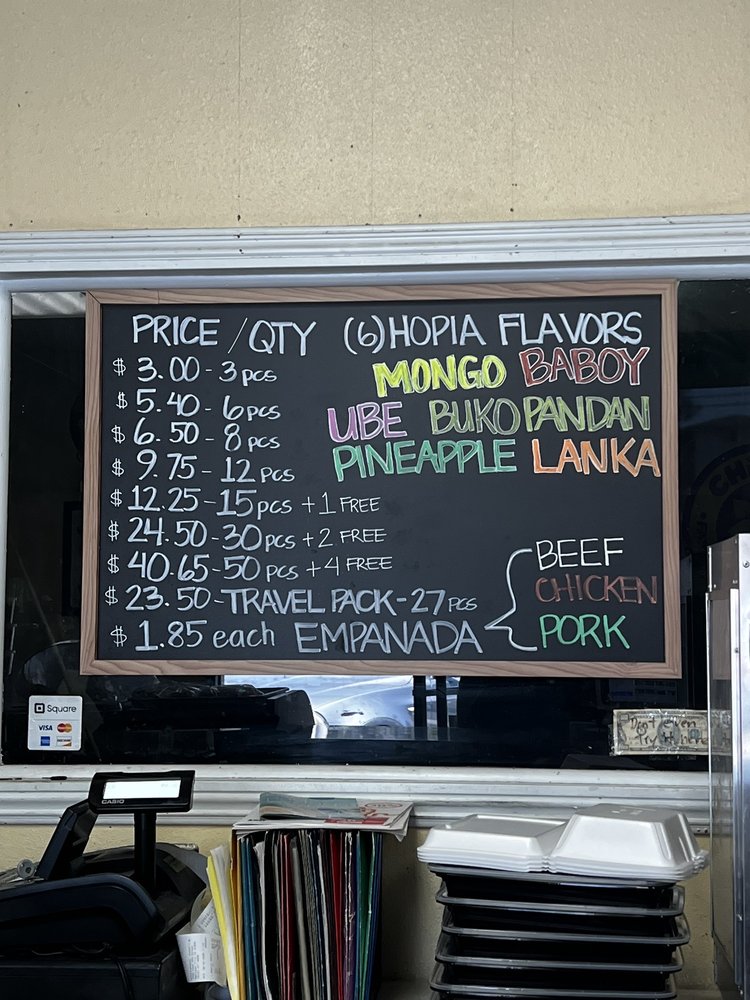 PRICE / QTY (6) HOPIA FLAVORS
$ 3.00 - 3 pcs
$ 5.40 - 6 pcs
$ 6.50 - 8 pcs
$ 9.75 - 12 pcs
$ 12.25 - 15 pcs + 1 FREE
$ 24.50 - 30 pcs + 2 FREE
$ 40.65 - 50 pcs + 4 FREE
$ 23.50 - TRAVEL PACK - 27 pcs
$ 1.85 each EMPANADA
MONGO BABOY
UBE BUKO PANDAN
PINEAPPLE LANKA
BEEF
CHICKEN
PORK
Square
VISA
CASIO